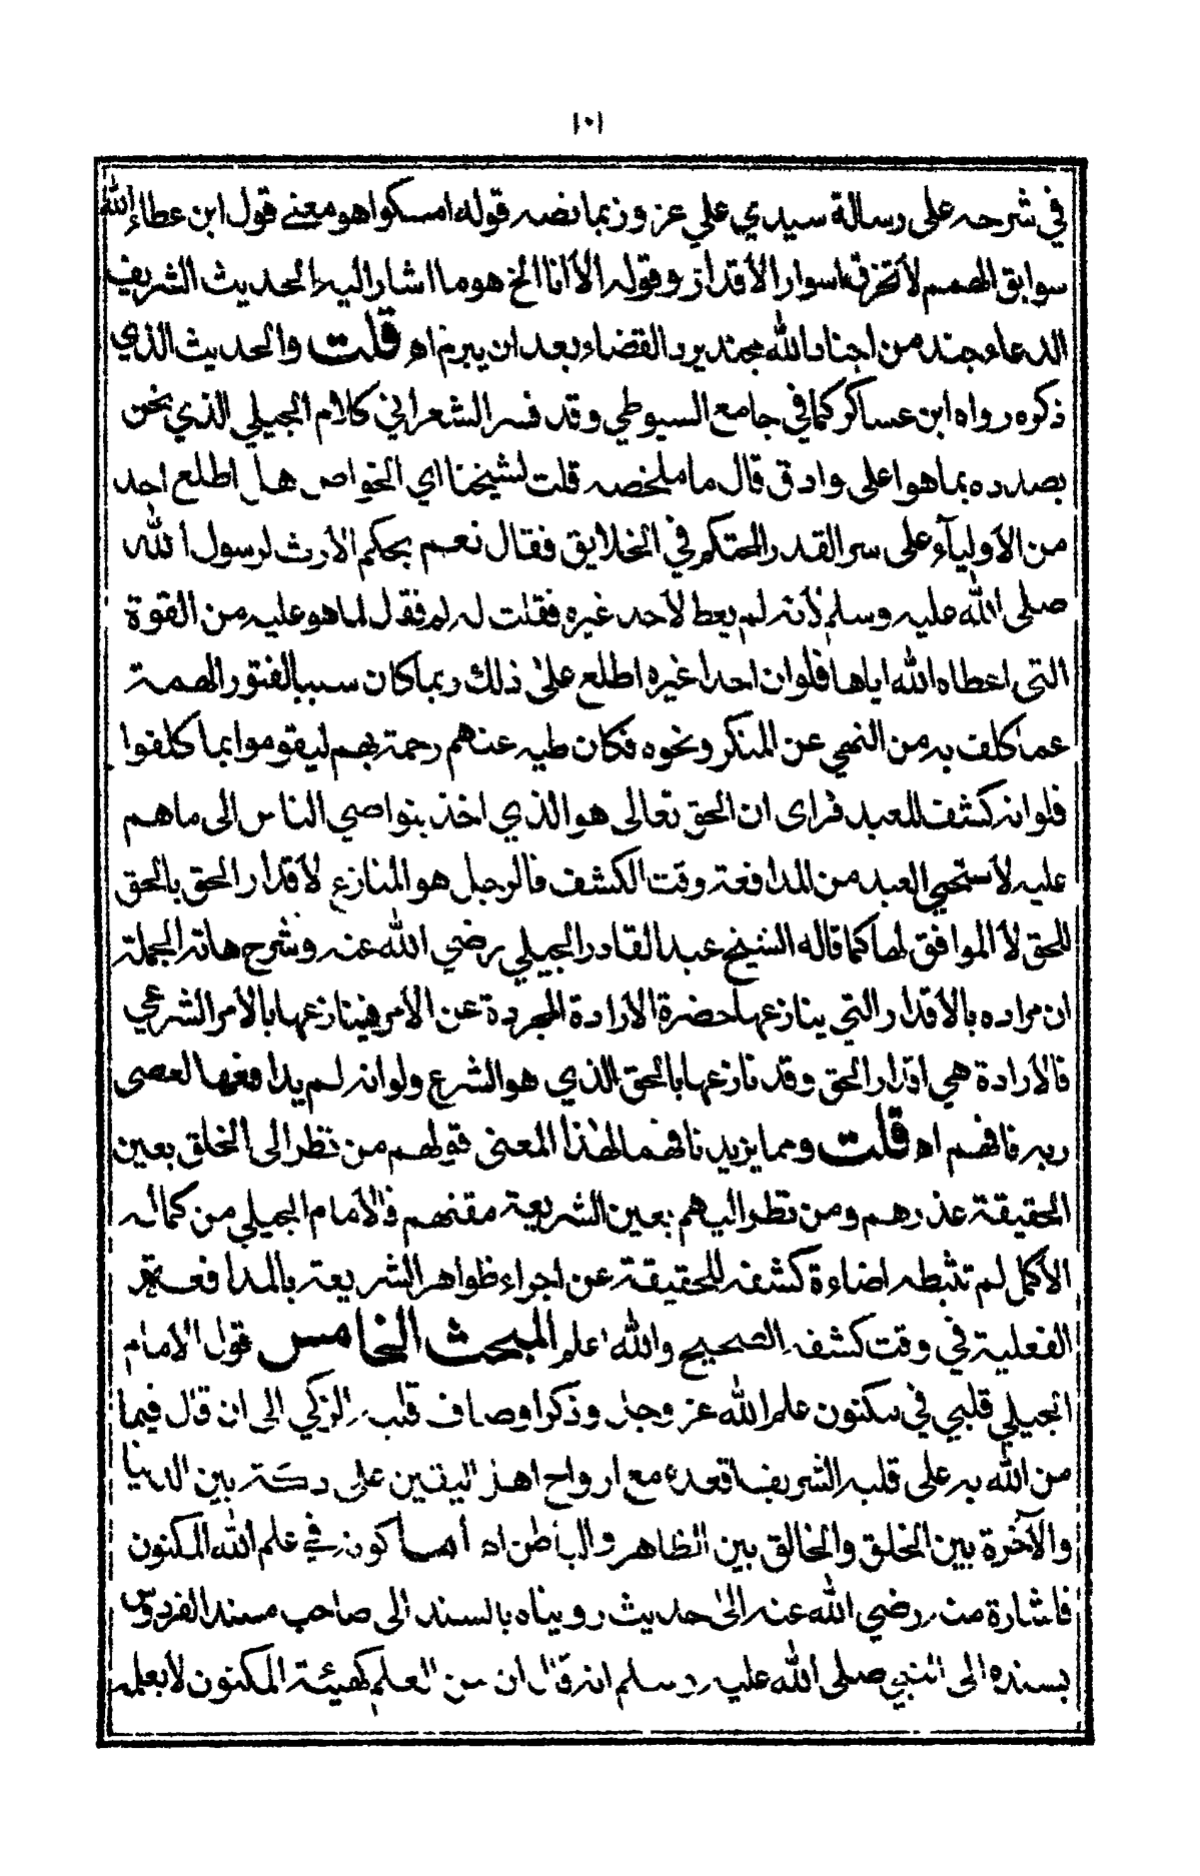 ١٠١
في شرحه على رسالة سيدي علي عزوز بما نصه قوله امسكوا هو معنى قول ابن عطاء الله
سوابق الهمم لا تخرق اسوار الأقدار وقوله الا انا الخ هو ما اشار اليه الحديث الشريف
الدعاء جند من اجناد الله مجند يرد القضاء بعد ان يبرم اه قلت والحديث الذي
ذكره رواه ابن عساكر كما في جامع السيوطي وقد فسر الشعراني كلام الجيلي الذي نحن
بصدده بما هو اعلى وادق قال ما ملخصه قلت لشيخنا اي الخواص هل اطلع احد
من الأولياء على سر القدر المتحكم في الخلايق فقال نعم بحكم الارث لرسول الله
صلى الله عليه وسلم لأنه لم يعط لاحد غيره فقلت له لم فقال لما هو عليه من القوة
التي اعطاه الله اياها فلو ان احدا غيره اطلع على ذلك ربما كان سببا لفتور الهمة
عما كلف به من النهي عن المنكر ونحوه فكان طيه عنهم رحمة بهم ليقوموا بما كلفوا
فلو انه كشف للعبد فراى ان الحق تعالى هو الذي اخذ بنواصي الناس الى ما هم
عليه لاستحيى العبد من المدافعة وقت الكشف فالرجل هو المنازع لأقدار الحق بالحق
للحق لا الموافق لها كما قاله الشيخ عبد القادر الجيلي رضي الله عنه وشرح هاته الجملة
ان مراده بالأقدار التي ينازعها حضرة الارادة المجردة عن الأمر فينازعها بالأمر الشرعي
فالارادة هي اقدار الحق وقد نازعها بالحق الذي هو الشرع ولو انه لم يدافعها لعصى
ربه فافهم اه قلت ومما يزيدنا فهما لهذا المعنى قولهم من نظر الى الخلق بعين
الحقيقة عذرهم ومن نظر اليهم بعين الشريعة مقتهم فالامام الجيلي من كماله
الأكمل لم تثبطه اضاءة كشفه للحقيقة عن اجراء ظواهر الشريعة بالمدافعة
الفعلية في وقت كشفه الصحيح والله اعلم المبحث الخامس قول الامام
الجيلي قلبي في مكنون علم الله عز وجل وذكر اوصاف قلبه الزكي الى ان قال فيما
من الله به على قلبه الشريف اقعده مع ارواح اهل اليقين على دكة بين الدنيا
والآخرة بين الخلق والخالق بين الظاهر والباطن اه أما كونه في علم الله المكنون
فاشارة منه رضي الله عنه الى حديث رويناه بالسند الى صاحب مسند الفردوس
بسنده الى النبي صلى الله عليه وسلم انه قال ان من العلم كهيئة المكنون لا يعلمه